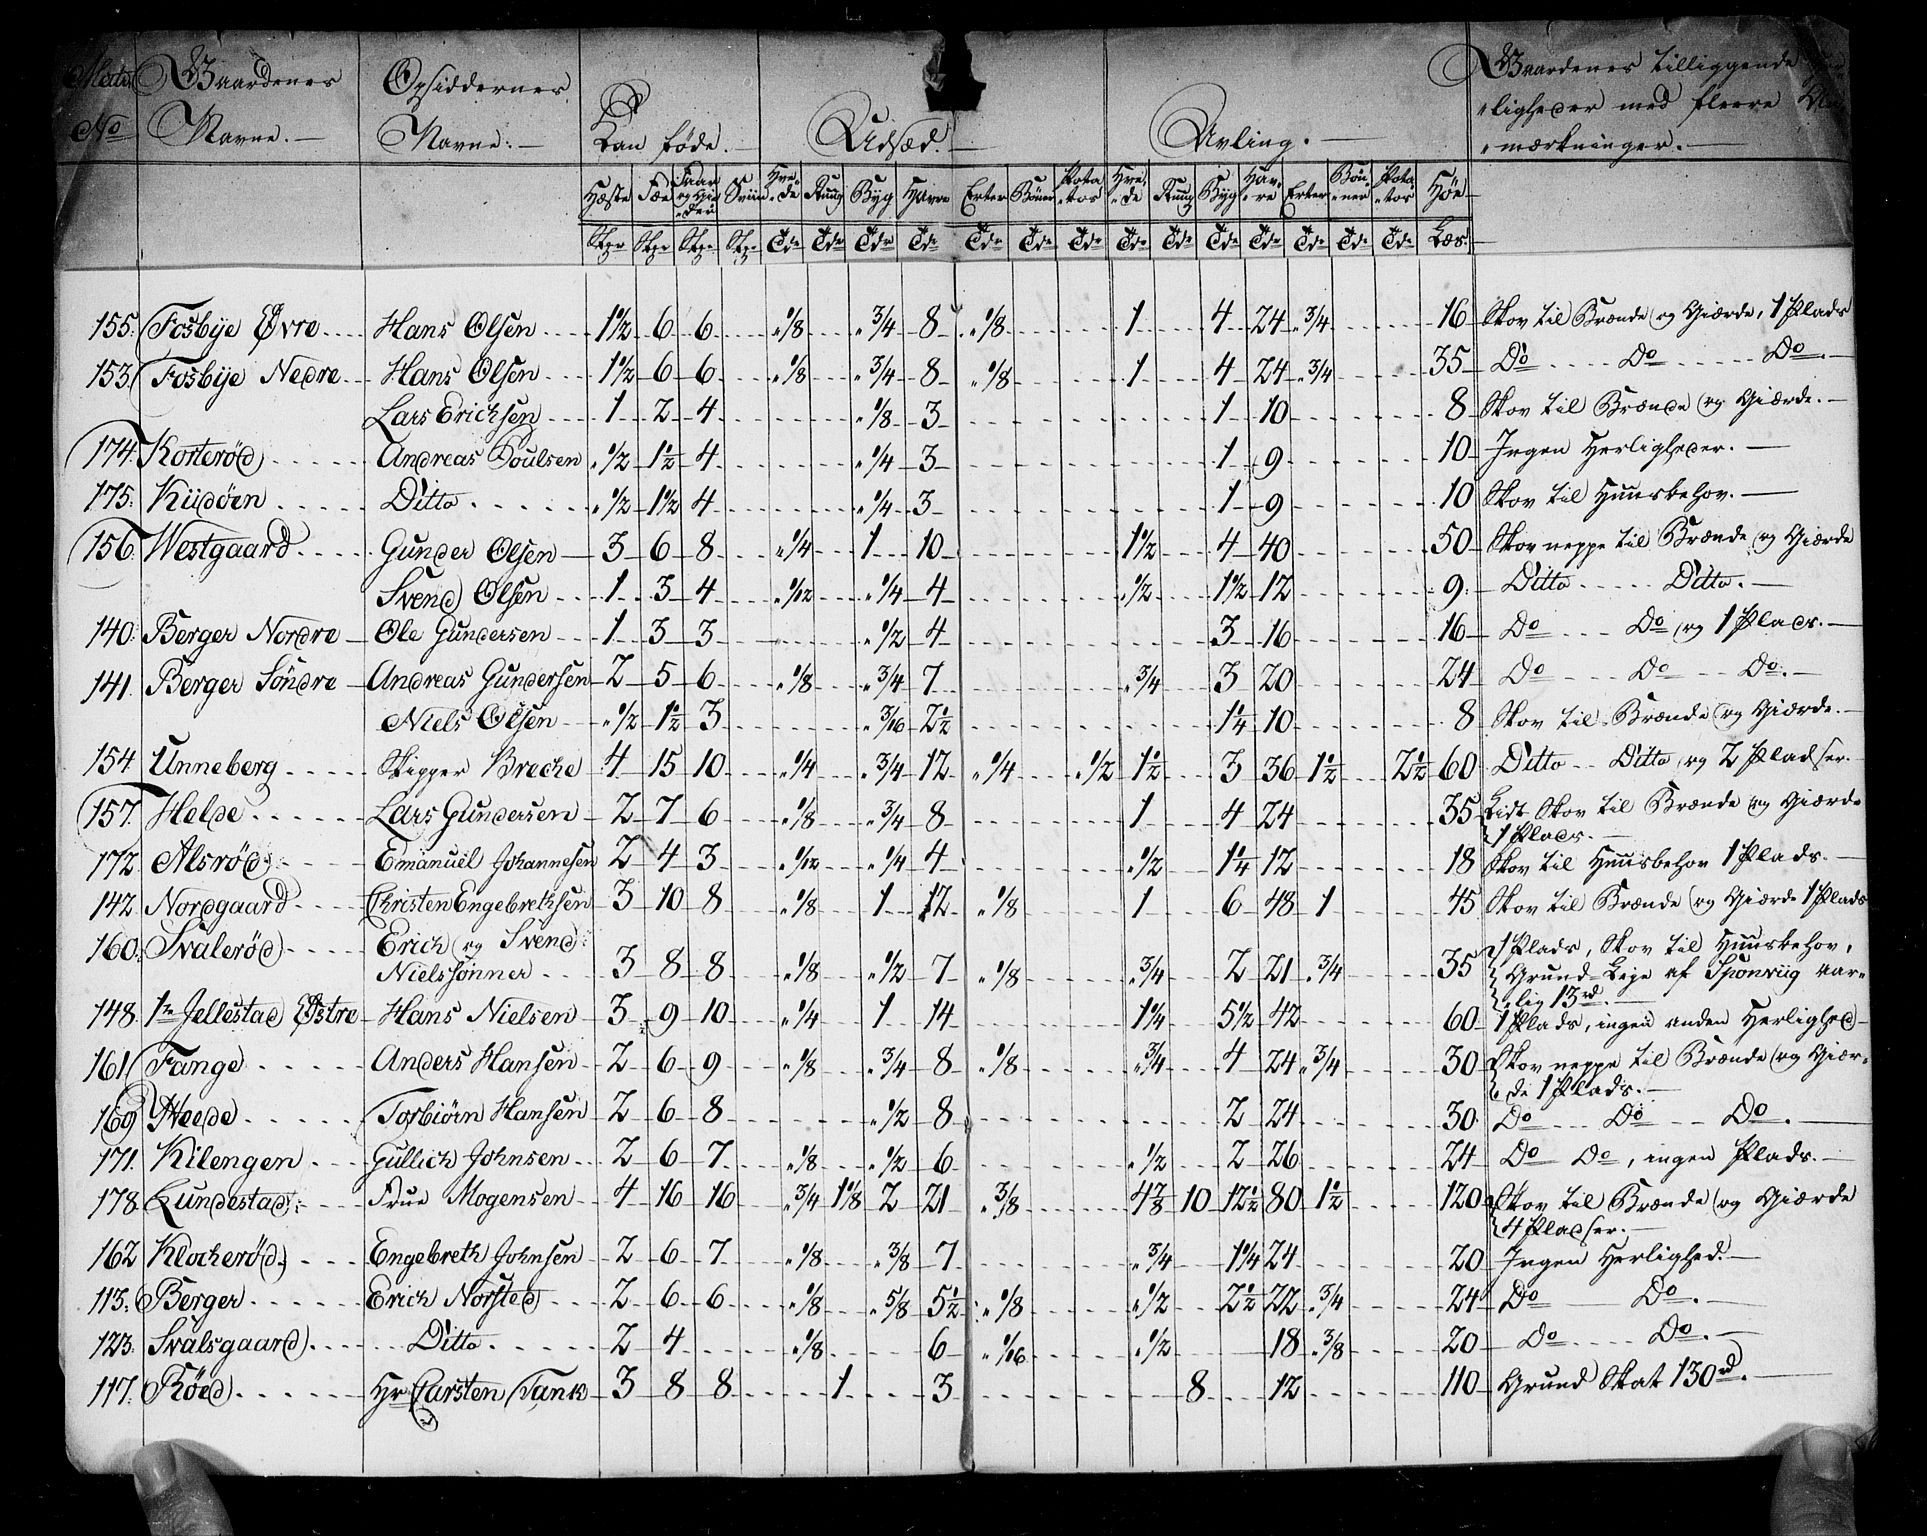 Gaardenes Navne. Opsiddernes Navne. Kan føde. Udsæd. Avling. Gaardenes tilliggende
No ligheder med fleere
mærkninger.
Hæste Fæe Faar og Gieder Sviin Hvede Ruug Byg Havre Erter Bönner Potatos Hvede Ruug Byg Havre Erter Bönner Potatos Höe
Stkr Stkr Stkr Stkr Tdr Tdr Tdr Tdr Tdr Tdr Tdr Tdr Tdr Tdr Tdr Tdr Tdr Tdr Læs.
155. Fosbÿe Øvre Hans Olsen 1½ 6 6 ⅛ ¾ 8 ⅛ 1 4 24 ¾ 16 Skov til Brænde og Giærde, 1 Plads
153. Fosbÿe Nedre Hans Olsen 1½ 6 6 ⅛ ¾ 8 ⅛ 1 4 24 ¾ 35 Do Do Do.
Lars Erichsen 1 2 4 ⅛ 3 1 10 8 Skov til Brænde og Giærde.
174. Kosterød Andreas Poulsen ½ 1½ 4 ¼ 3 1 9 10 Ingen Herligheder.
175. Kiidöen Ditto ½ 1½ 4 ¼ 3 1 9 10 Skov til Huusbehov.
156. Westgaard Gunder Olsen 3 6 8 ¼ 1 10 1½ 4 40 50 Skov neppe til Brænde og Giærde
Svend Olsen 1 3 4 1/12 ¼ 4 ½ 1½ 12 9. Ditto Ditto.
140. Berger Nordre Ole Gundersen 1 3 3 ½ 4 3 16 16 Do Do og 1 Plads.
141. Berger Söndre Andreas Gundersen 2 5 6 ⅛ ¾ 7 ¾ 3 20 24 Do Do Do.
Niels Olsen ½ 1½ 3 3/16 2½ 1¼ 10 8 Skov til Brænde og Giærde.
154 Unneberg Skipper Breche 4 15 10 ¼ ¾ 12 ¼ ½ 1½ 3 36 1½ 2½ 60 Ditto Ditto og 2 Pladser.
157. Helde Lars Gundersen 2 7 6 ⅛ ¾ 8 1 4 24 35 Lidt Skov til Brænde og Giærde
1 Plads.
172. Alsrød Emanuel Johannesen 2 4 3 1/12 ¼ 4 ½ 1¼ 12 18 Skov til Huusbehov 1 Plads.
142. Nordgaard Christen Engebrethsen 3 10 8 ⅛ 1 12 ⅛ 1 6 48 1 45 Skov til Brænde og Giærde 1 Plads
160. Svalerød Erich og Svend 1 Plads, Skov til Huusbehov,
Nielssönner 3 8 8 ⅛ ½ 7 ⅛ ¾ 2 21 ¾ 35 Grund-Leje af Spönviig aar-
lig 13rd.
148. 1te Jellestad Østre Hans Nielsen 3 9 10 ¼ 1 14 1¼ 5½ 42 60 1 Plads, ingen anden Herlighed
161 Tange Anders Hansen 2 6 9 ⅛ ¾ 8 ⅛ ¾ 4 24 ¾ 30 Skov neppe til Brænde og Giær-
de 1 Plads.
169 Heede Torbiörn Hansen 2 6 8 ½ 8 2 24 30 Do Do Do.
171. Kilengen Gullich Johnsen 2 6 7 ⅛ ½ 6 ½ 2 26 24 Do Do, ingen Plads.
178. Lundestad Frue Mogensen 4 16 16 ¾ 1⅛ 2 21 ⅜ 4⅞ 10 12½ 80 1½ 120 Skov til Brænde og Giærde
4 Pladser.
162 Klocherød Engebreth Johnsen 2 6 7 ⅛ ⅜ 7 ¾ 1¼ 24 20 Ingen Herlighed.
113. Berger Erich Norsted 2 6 6 ⅛ ⅝ 5½ ⅛ ½ 2½ 22 ¾ 24 Do Do.
123. Svalsgaard Ditto 2 4 ⅛ 6 1/16 ½ 18 ⅜ 20 Do Do.
117. Röed Hr Carsten Tank 3 8 8 1 3 8 12 110 Grund Skat 130rd.